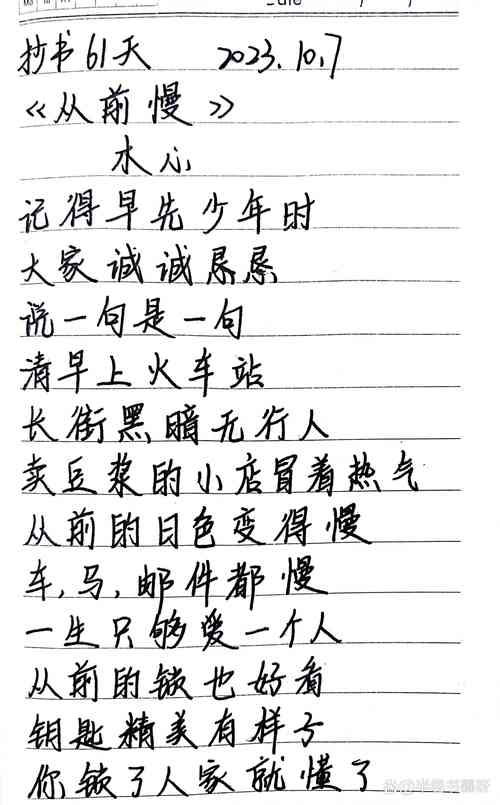 抄书61天 2023.10.7
《从前慢》
木心
记得早先少年时
大家诚诚恳恳
说一句是一句
清早上火车站
长街黑暗无行人
卖豆浆的小店冒着热气
从前的日色变得慢
车,马,邮件都慢
一生只够爱一个人
从前的锁也好看
钥匙精美有样子
你锁了人家就懂了